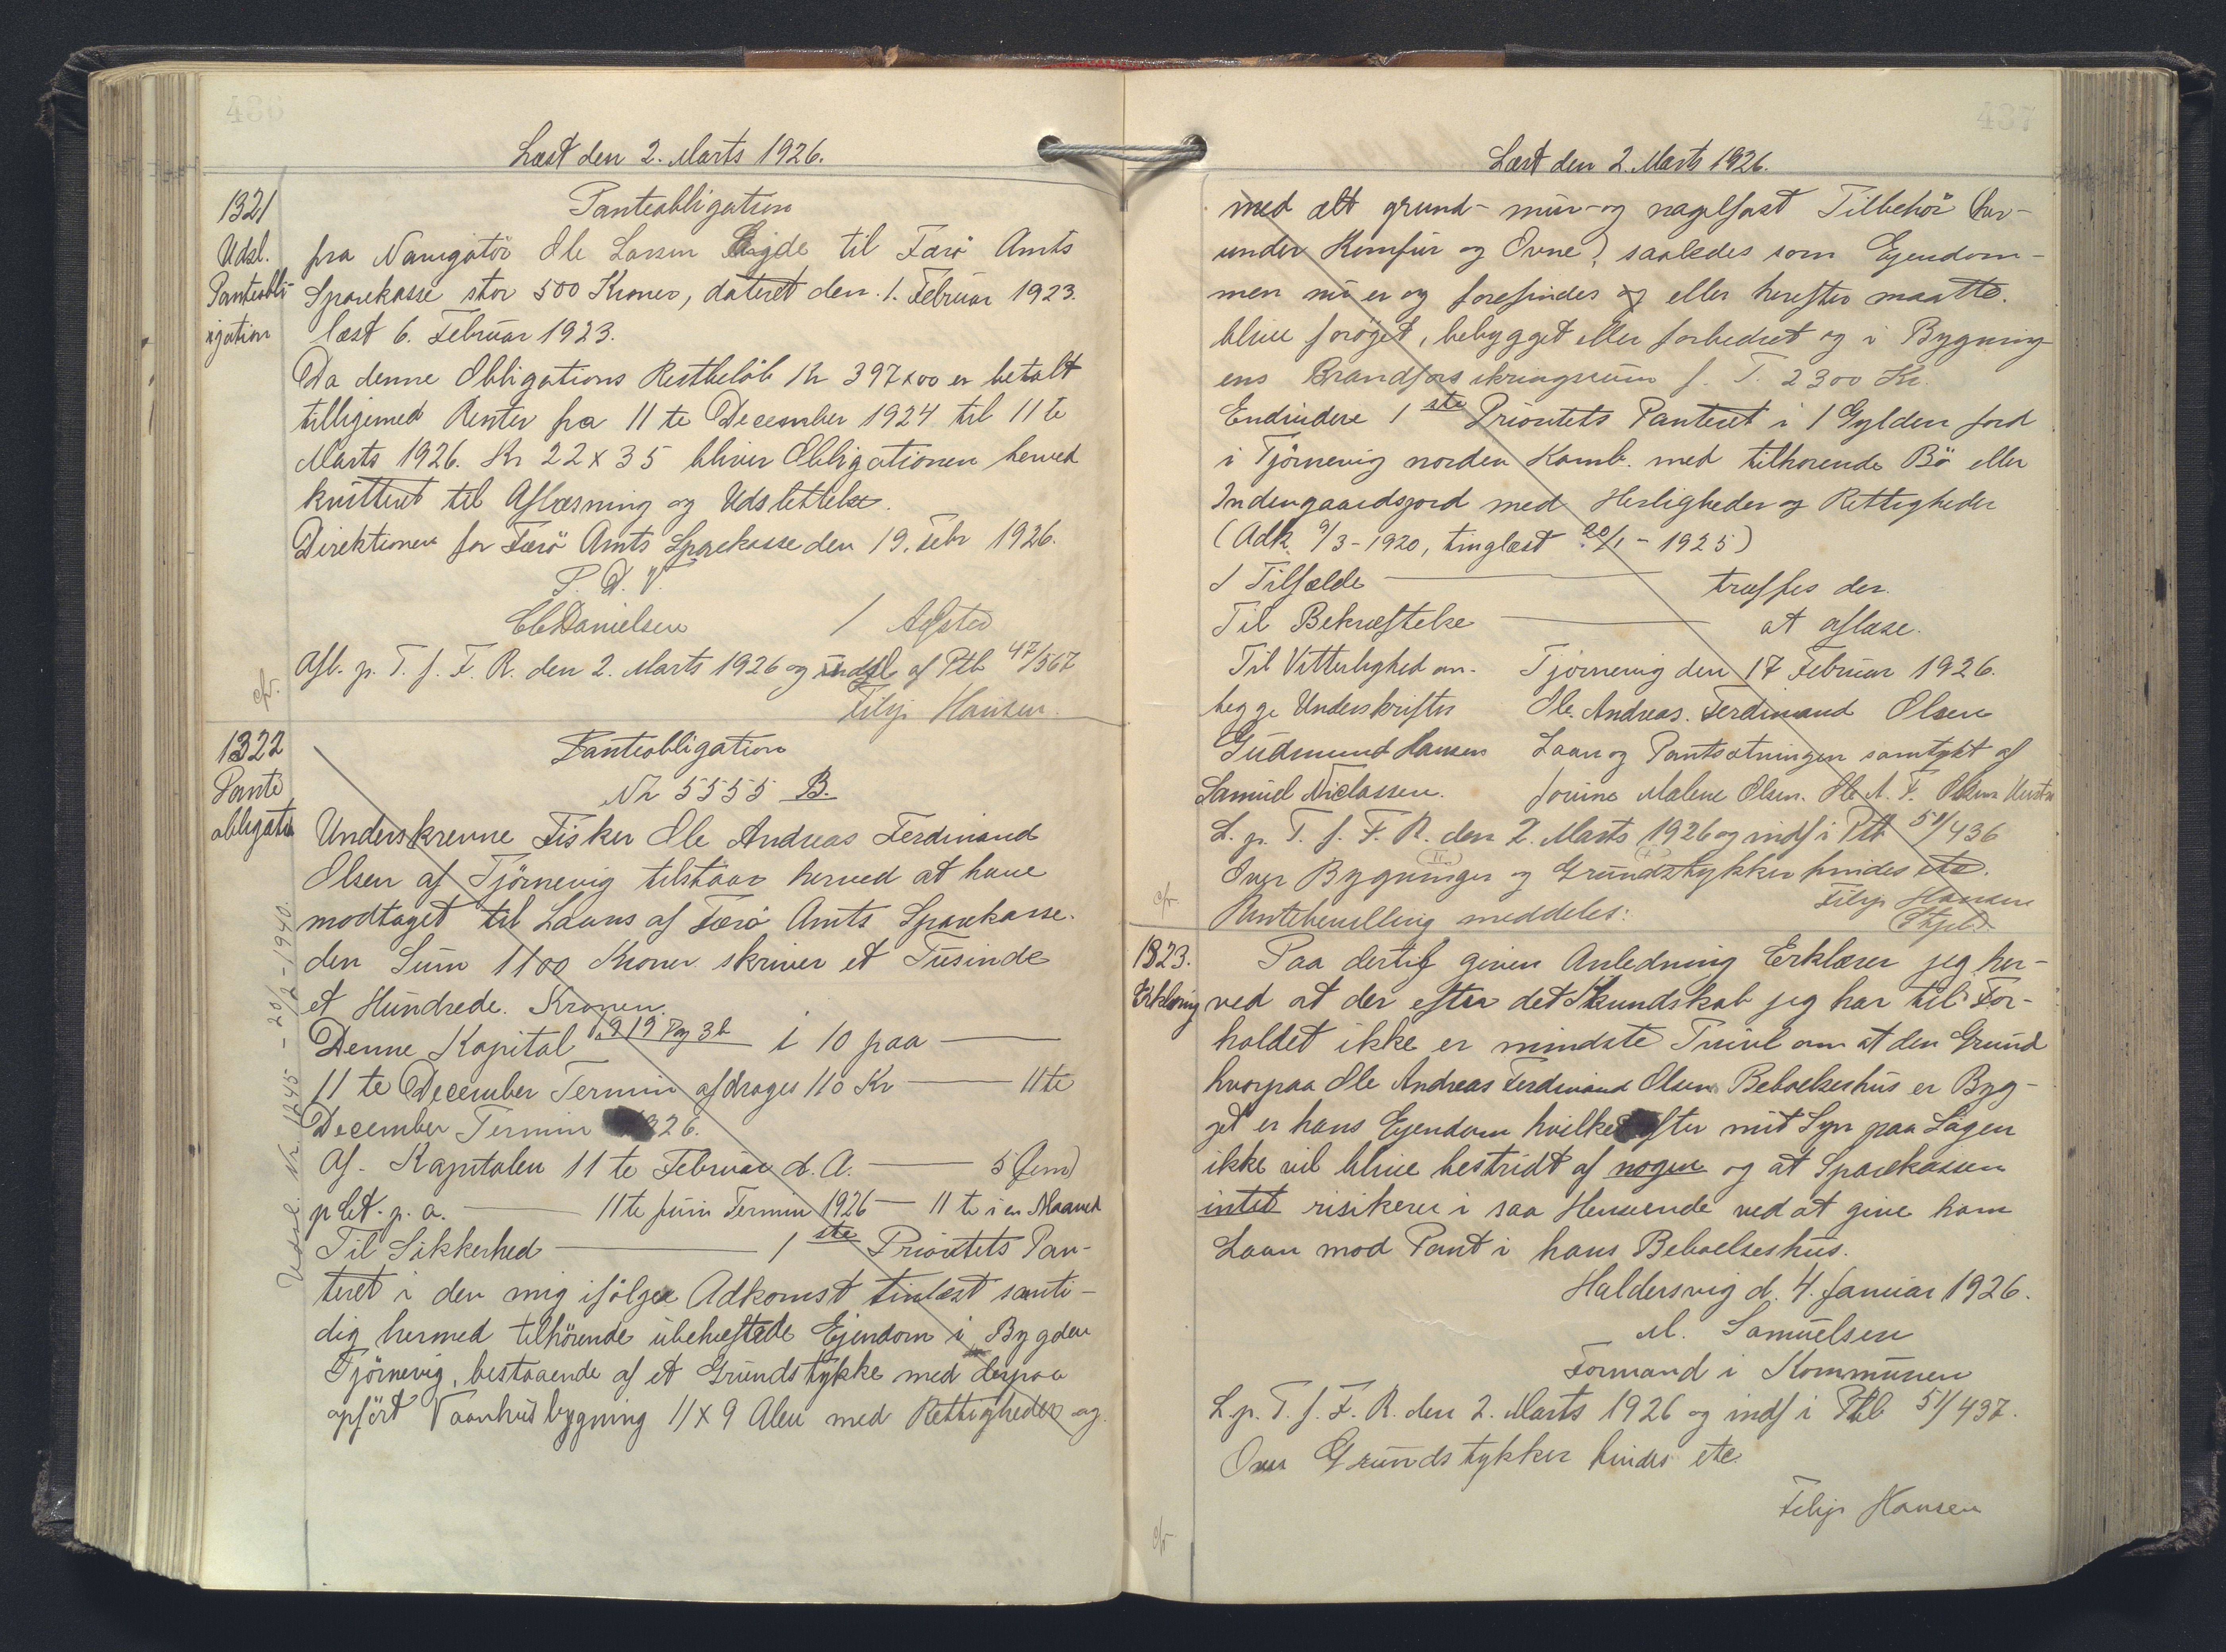 436
Læst den 2. Marts 1926.
1321
Udsl.
Panteobli-
igation
Panteobligation
fra Navigatör Ole Larsen Eigde til Færö Amts
Sparekasse stor 500 Kroner, dateret den. 1. Februar 1923.
læst 6. Februar 1923.
Da denne Obligations Restbelöb Kr 397x00 er betalt
tilligemed Renter fra 11 te December 1924 til 11 te
Marts 1926. Kr 22x35 bliver Obligationen herved
kvitteret til Aflæsning og Udslettelse.
Direktionen for Færö Amts Sparekasse den 19. Febr 1926.
P. D. V.
Danielsen /
Afl. p. T. f. F. R. den 2. Marts 1926 og udsl af Ptb 47/567
Filip Hansen
cfr.
1322
Pante
obligation
Panteobligation
Nr 5555 B.
Underskrevne Fisker Ole Andreas Ferdinand
Olsen af Tjörnevig tilstaar herved at have
modtaget til Laans af Færö Amts Sparekasse.
den Sum 1100 Kroner skriver et Tusinde
et Hundrede. Kroner.
Denne Kapital 1919 Pag 36 i 10 paa ——
11 te December Termin afdrages 110 Kr —— 11te
December Termin 1926.
Af. Kapitalen 11 te Februar d. A. —— 5 (fem)
p Ct. p. a. —— 11te Juni Termin 1926 — 11 te i en Maaned
Til Sikkerhed —— 1 ste Prioritets Pan-
teret i den mig ifölge Adkomst tinlæst samti-
dig hermed tilhörende ubehæftede Ejendom i Bygden
Tjörnevig, bestaaende af et Grundstykke med derpaa
opfört Vaanhusbygning 11x9 Alen med Rettigheder og
Udsl. Nr. 1245 - 20/2-1940.
437
Læst den 2. Marts 1926.
med alt grund- mur- og nagelfast Tilbehör (her-
under Komfur og Ovne), saaledes som Ejendom-
men nu er og forefindes og eller herefter maatte.
blive foröget, bebygget eller forbedret og i Bygning
ens Brandforsikringssum f. T. 2300 Kr.
Endvidere 1 ste Prioritets Panteret i 1 Gylden Jord
i Tjörnevig norden Kamb. med tilhorende Bö eller
Indengaardsjord med Herligheder og Rettigheder
(Adk. 9/3-1920, tinglæst 20/1-1925)
I Tilfælde —— træffes der.
Til Bekræftelse —— at aflæse.
Til Vitterlighed om- Tjörnevig den 17 Februar 1926.
begge Underskrifter Ole. Andreas. Ferdinand Olsen
Gudmund Hansen Laan og Pantsætningen samtykt af
Samuel Niclassen. Jovine Malene Olsen. Ole A. F. Olsens Hustru
L. p. T. f. F. R. den 2. Marts 1926 og indf i Ptb 51/436
Over Bygninger og Grundstykker findes etc.
Filip Hansen
cfr.
Rentebevilling meddeles:
1323.
Erklæring
Paa dertil given Anledning Erklærer jeg her-
ved at der efter det Kundskab jeg har til For-
holdet ikke er mindste Tvivl om at den Grund
hvorpaa Ole Andreas Ferdinand Olsens Beboelseshus er Byg-
get er hans Ejendom hvilket efter mit Syn paa Sagen
ikke vil blive bestridt af nogen og at Sparekassen
intet risikerer i saa Henseende ved at give ham
Laan mod Pant i hans Beboelseshus.
Haldersvig d. 4. Januar 1926.
M. Samuelsen
Formand i Kommunen
L. p. T. f. F. R. den 2. Marts 1926 og indf i Ptb 51/437.
Over Grundstykker findes etc.
Filip Hansen
cfr.